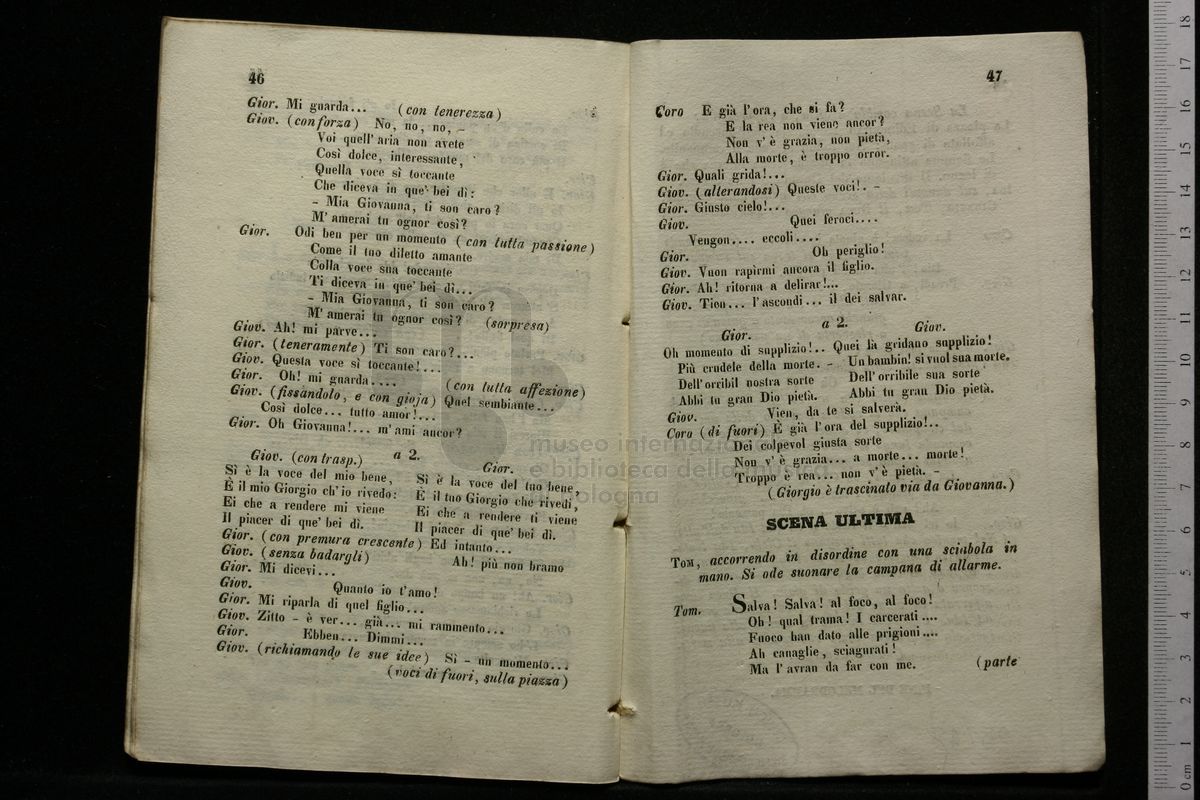 46
Gior. Mi guarda... (con tenerezza)
Giov. (con forza) No, no, no, –
Voi quell' aria non avete
Così dolce, interessante,
Quella voce sì toccante
Che diceva in que' bei dì:
– Mia Giovanna, ti son caro?
M' amerai tu ognor così?
Gior. Odi ben per un momento (con tutta passione)
Come il tuo diletto amante
Colla voce sua toccante
Ti diceva in que' bei dì...
– Mia Giovanna, ti son caro?
M' amerai tu ognor così? (sorpresa)
Giov. Ah! mi parve...
Gior. (teneramente) Ti son caro?...
Giov. Questa voce sì toccante!...
Gior. Oh! mi guarda.... (con tutta affezione)
Giov. (fissandolo, e con gioja) Quel sembiante...
Così dolce... tutto amor!...
Gior. Oh Giovanna!... m' ami ancor?
a 2.
Giov. (con trasp.) Gior.
Sì è la voce del mio bene, Sì è la voce del tuo bene,
È il mio Giorgio ch' io rivedo: È il tuo Giorgio che rivedi,
Ei che a rendere mi viene Ei che a rendere ti viene
Il piacer di que' bei dì. Il piacer di que' bei dì.
Gior. (con premura crescente) Ed intanto...
Giov. (senza badargli) Ah! più non bramo
Gior. Mi dicevi...
Giov. Quanto io t'amo!
Gior. Mi riparla di quel figlio...
Giov. Zitto – è ver... già... mi rammento...
Gior. Ebben... Dimmi...
Giov. (richiamando le sue idee) Sì – un momento...
(voci di fuori, sulla piazza)
47
Coro E già l'ora, che si fa?
E la rea non viene ancor?
Non v' è grazia, non pietà,
Alla morte, è troppo orror.
Gior. Quali grida!...
Giov. (alterandosi) Queste voci!. –
Gior. Giusto cielo!...
Giov. Quei feroci....
Vengon.... eccoli....
Gior. Oh periglio!
Giov. Vuon rapirmi ancora il figlio.
Gior. Ah! ritorna a delirar!...
Giov. Tien... l'ascondi... il dei salvar.
a 2.
Gior. Giov.
Oh momento di supplizio!.. Quei là gridano supplizio!
Più crudele della morte. – Un bambin! si vuol sua morte.
Dell' orribil nostra sorte Dell' orribile sua sorte
Abbi tu gran Dio pietà. Abbi tu gran Dio pietà.
Giov. Vien, da te si salverà.
Coro (di fuori) È già l'ora del supplizio!..
Dei colpevol giusta sorte
Non v' è grazia... a morte... morte!
Troppo è rea... non v' è pietà. –
(Giorgio è trascinato via da Giovanna.)
SCENA ULTIMA
TOM, accorrendo in disordine con una sciabola in
mano. Si ode suonare la campana di allarme.
Tom. Salva! Salva! al foco, al foco!
Oh! qual trama! I carcerati....
Fuoco han dato alle prigioni....
Ah canaglie, sciagurati!
Ma l'avran da far con me. (parte
museo internazionale
e biblioteca della musica
di bologna